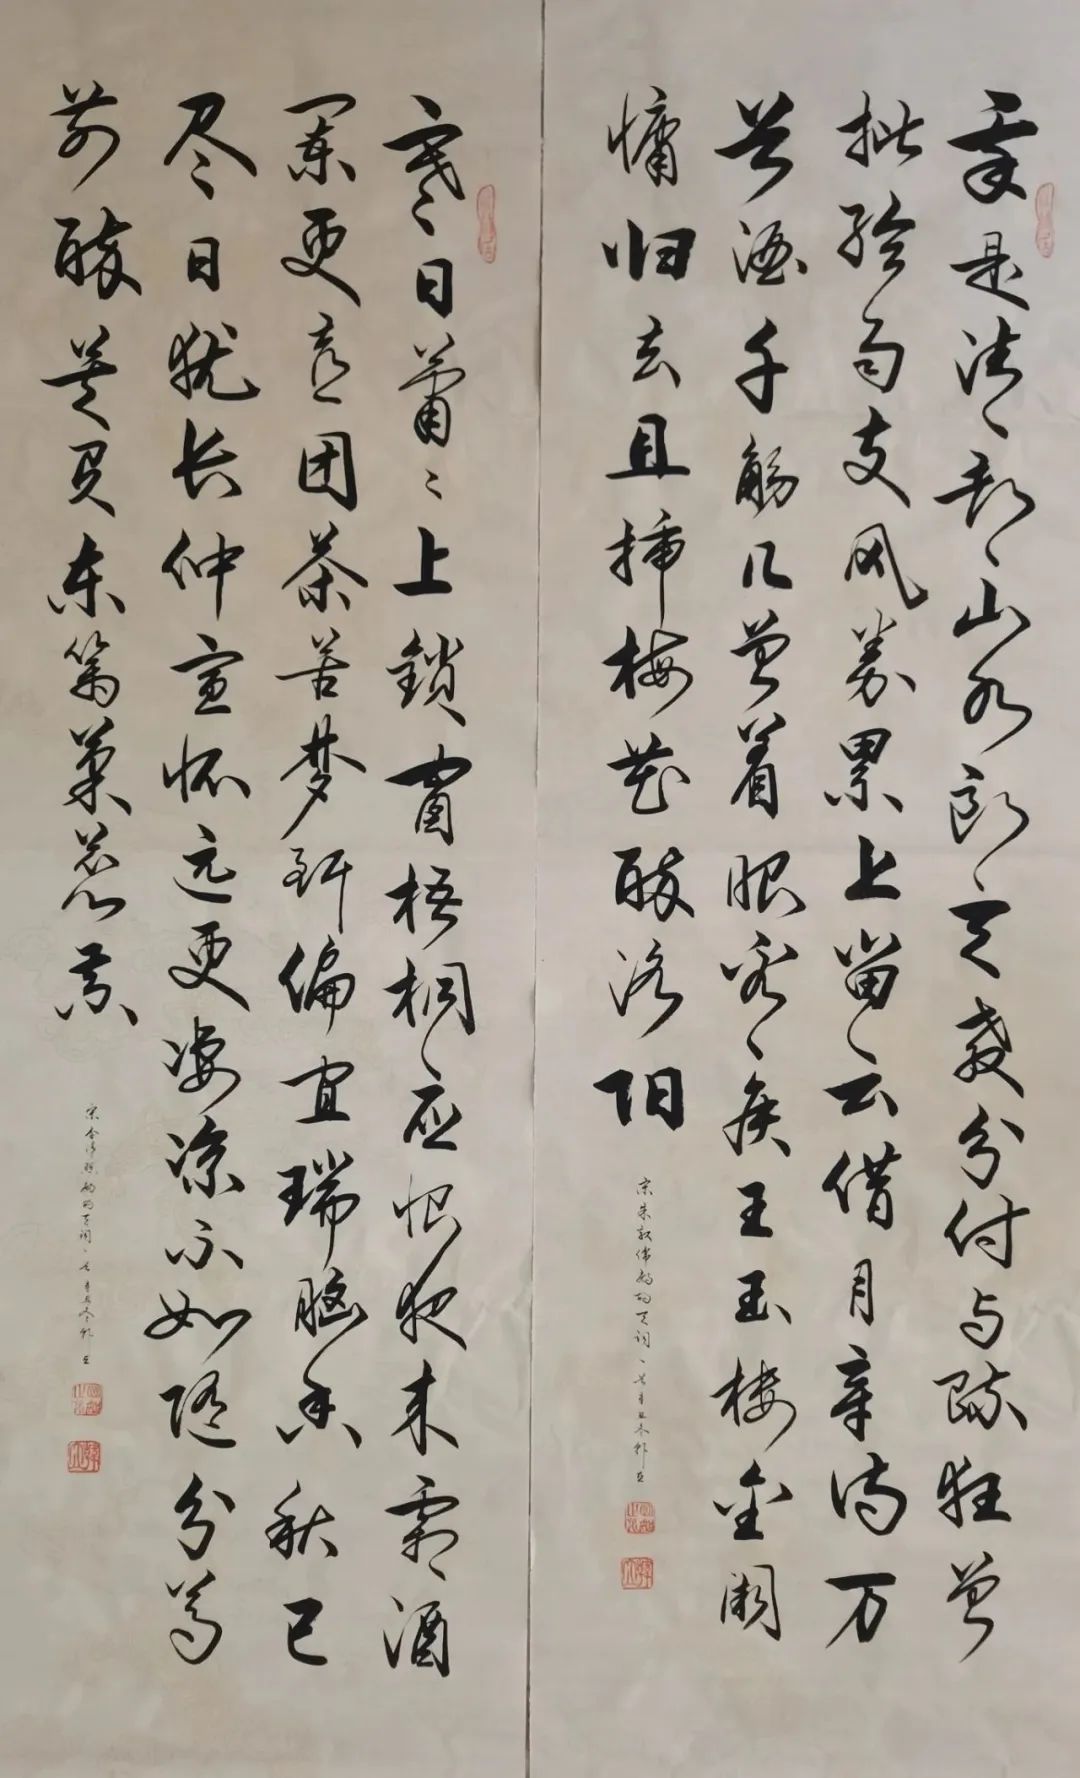 我是清都山水郎天教分付与疏狂曾
批给雨支风券累上留云借月章诗万
首酒千觞几曾着眼看侯王玉楼金阙
慵归去且插梅花醉洛阳
宋朱敦儒鹧鸪天词一首辛丑冬
寒日萧〻上锁窗梧桐应恨夜来霜酒
阑更喜团茶苦梦断偏宜瑞脑香秋已
尽日犹长仲宣怀远更凄凉不如随分尊
前醉莫负东篱菊蕊黄
宋李清照鹧鸪天词一首辛丑冬